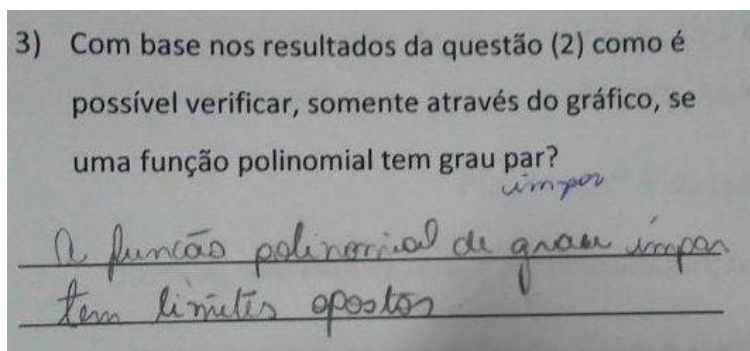 3) Com base nos resultados da questão (2) como é
possível verificar, somente através do gráfico, se
uma função polinomial tem grau par?
impar
A função polinomial de grau impar
tem limites opostos